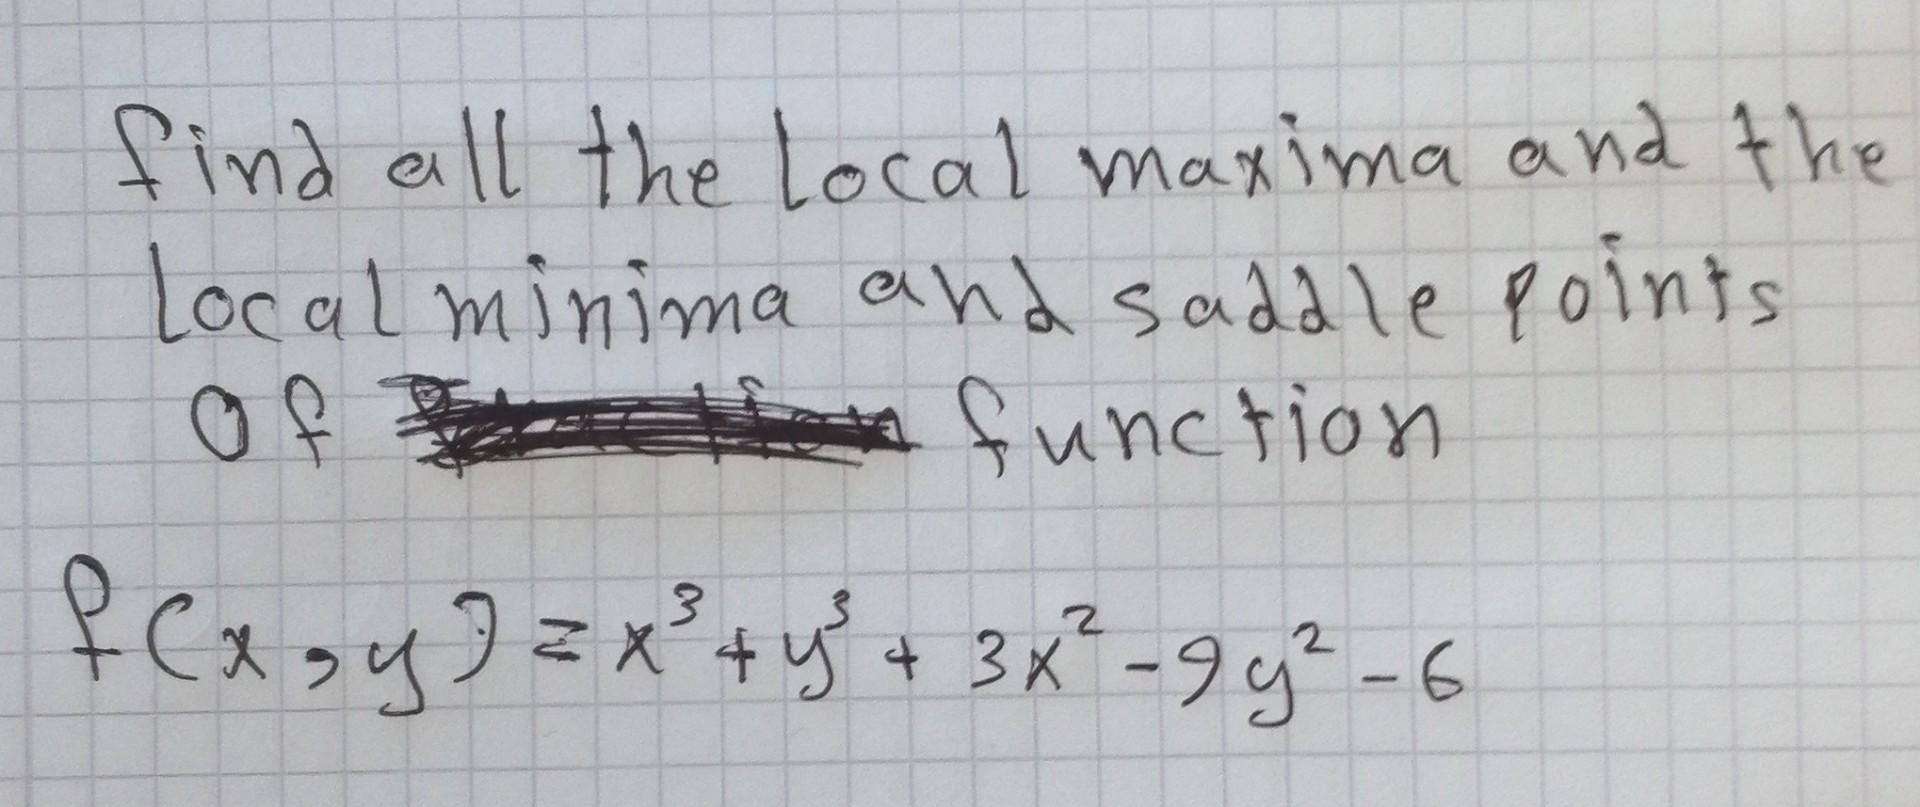 find all the local maxima and the
local minima and saddle points
of function
f(x,y) = x³ + y³ + 3x² - 9y² - 6